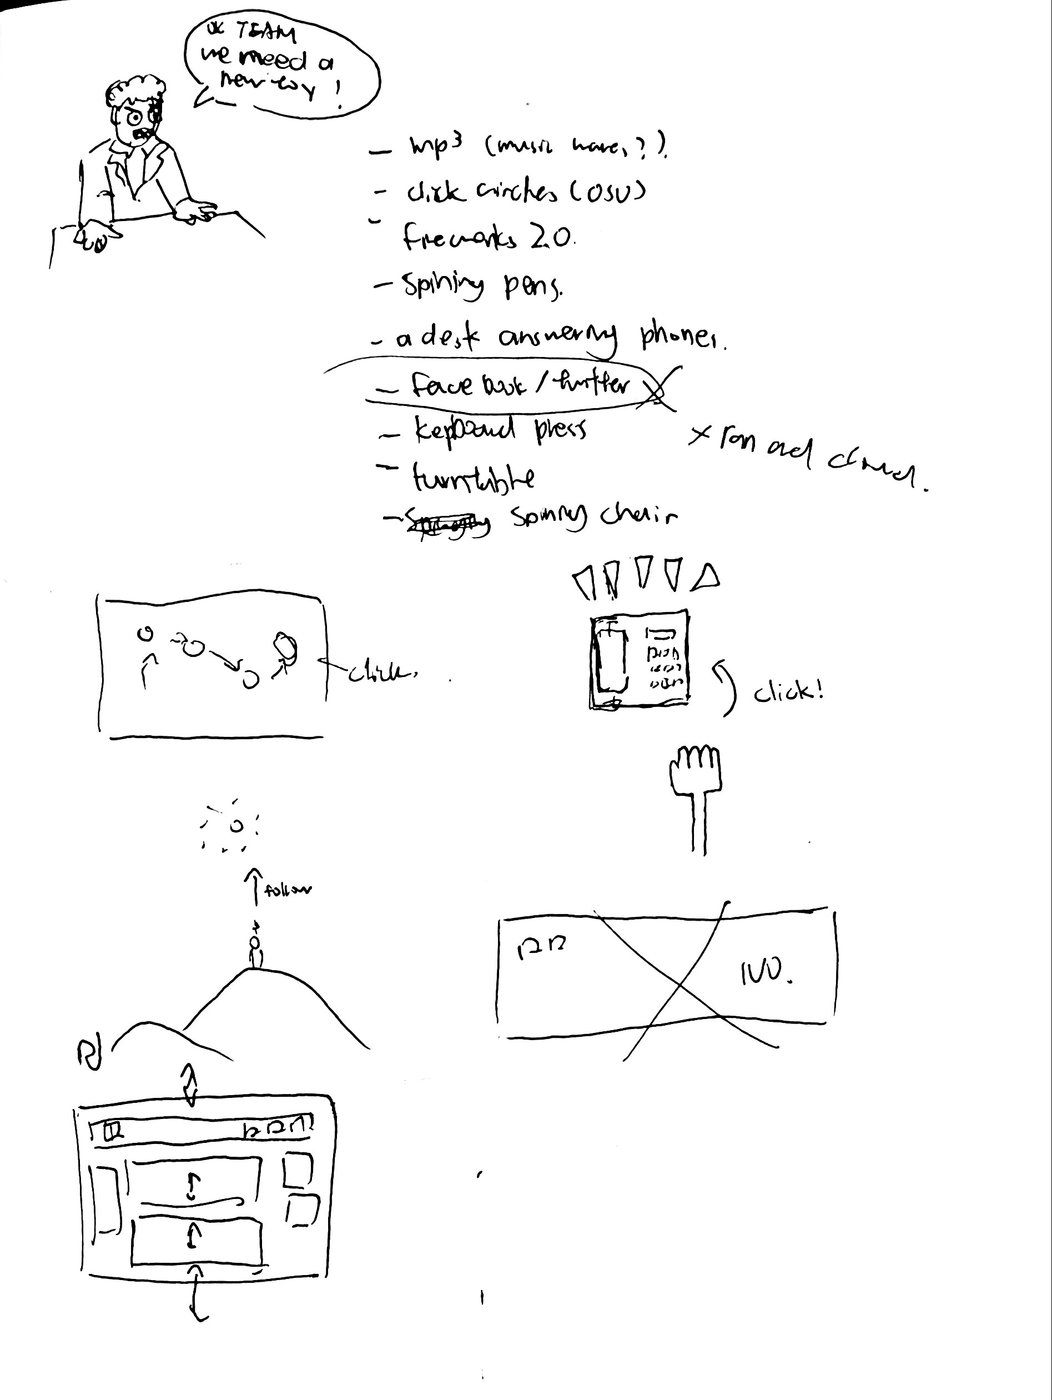 OK TEAM
we need a
new toy!
- mp3 (music waves?).
- click circles (OSU)
- fireworks 2.0.
- spining pens.
- a desk answering phones.
- facebook/twitter
- keyboard press
- turntable
- spinny chair
click.
click!
follow